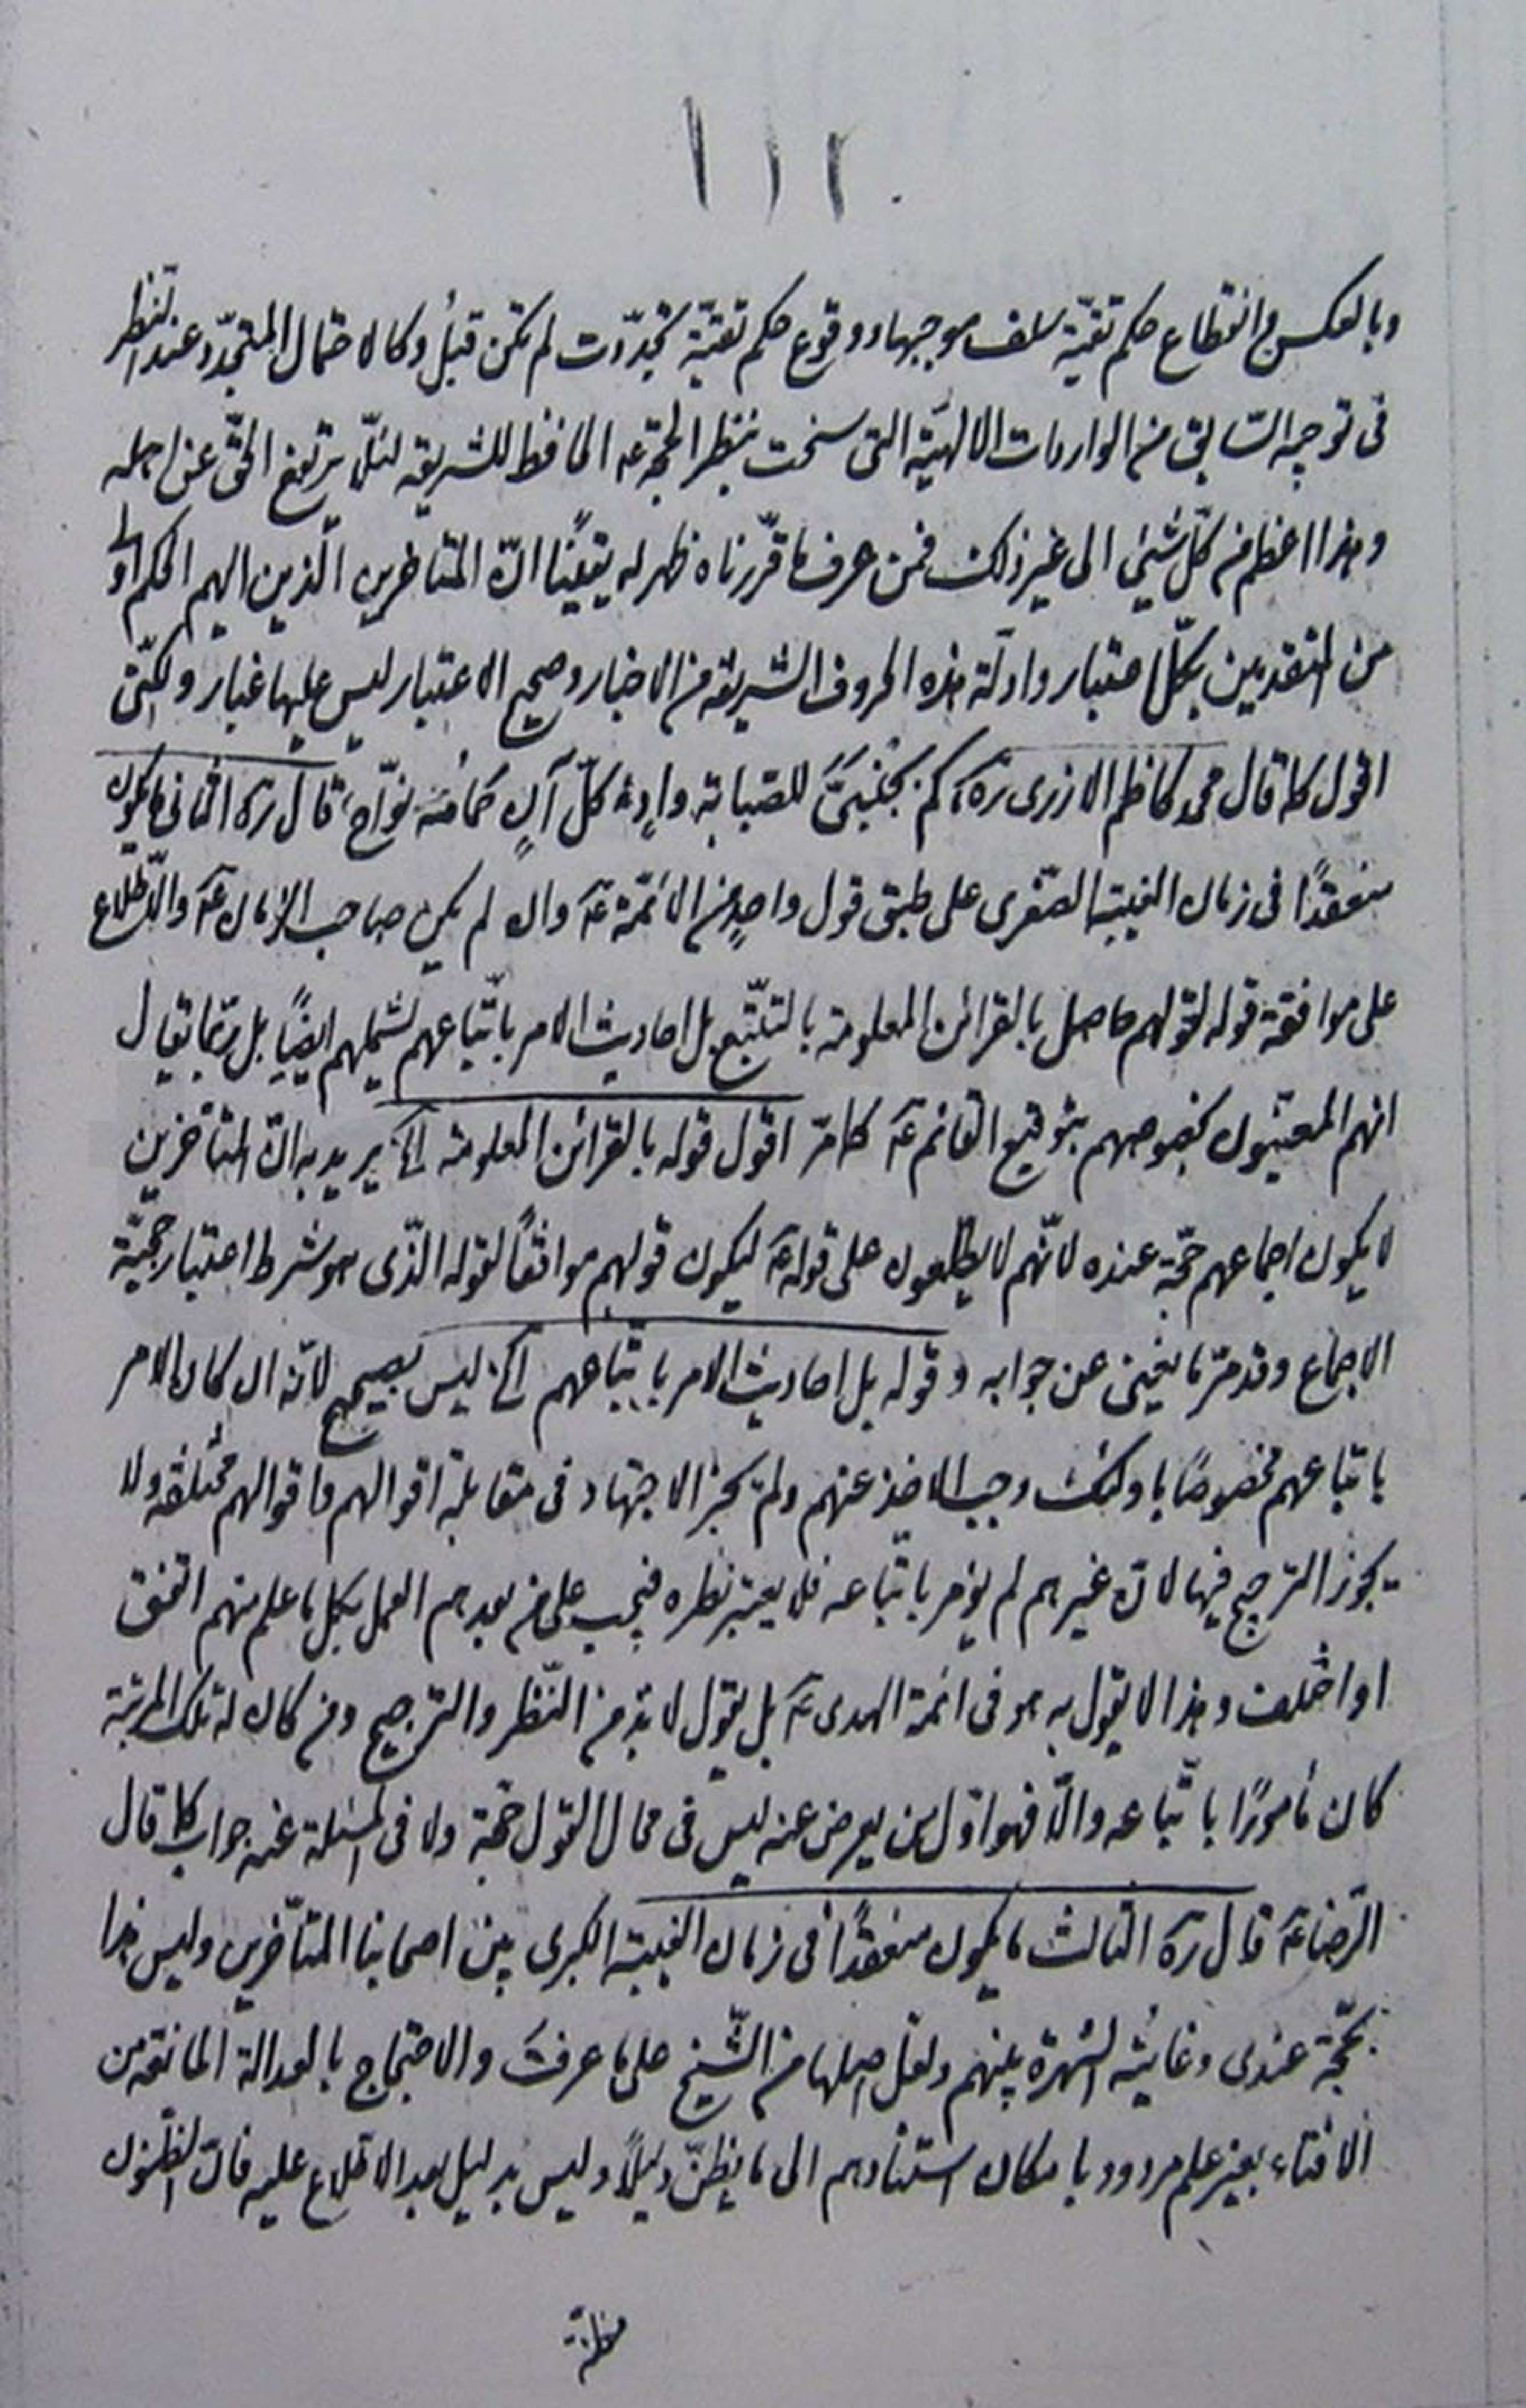 ١١٢
وبالعكس وانقطاع حكم تقيّة سلف موجبها ووقوع حكم تقيّة تجدّدت لم تكن قبل وكالاحتمال المتجدّد عند النظر
فى توجيه السّابق من الواردات الالهيّة التى سنحت بنظر الحجّة عه الحافظ للشريعه لئلّا يرتفع الحقّ عن اهله
وهذا اعظم من كلّ شيئ الى غير ذلك فمن عرف ما قرّرناه ظهر له يقينًا انّ المتاخرين الّذين اليهم الحكم اولى
من المتقدمين بكلّ اعتبار وادلّة هذه الحروف الشريفه من الاخبار وصحيح الاعتبار ليس عليها غبار ولكنّى
اقول كما قال محمد كاظم الازرى ره كم بجنبىّ للصّبابة وادٍ كلّ آنٍ حمامُه نوّاح، قال ره الثانى ما يكون
منعقدًا فى زمان الغيبة الصّغرى على طبق قول واحدٍ من الائمّة عه وان لم يكن صاحب الزمان عه والاطّلاع
على موافقة قوله لقولهم حاصل بالقرائن المعلومة بالتتبّع بل احاديث الامر باتّباعهم يشملهم ايضًا بل ربّما يقال
انهم المعنيّون بخصوصهم بتوقيع القائم عه كما مرّ اقول قوله بالقرائن المعلومة الخ يريد به انّ المتأخرين
لا يكون اجماعهم حجّة عنده لانّهم لا يطّلعون على قوله عه ليكون قولهم موافقًا لقوله الذّى هو شرط اعتبار حجيّة
الاجماع وقد مرّ ما يغنى عن جوابه وقوله بل احاديث الامر باتّباعهم الخ ليس بصحيح لانّه ان كان الامر
باتباعهم مخصوصًا باولئك وجب الاخذ عنهم ولم يجز الاجتهاد فى مقابلة اقوالهم واقوالهم مختلفة ولا
يجوز الترجيح فيها لانّ غيرهم لم يؤمر باتّباعه فلا يعتبر نظره فيجب على من بعدهم العمل بكل ما علم منهم اتّفق
او اختلف وهذا لا يقول به هو فى ائمة الهدى عه بل يقول لا بدّ من النّظر والترجيح ومن كان له تلك المرتبة
كان مأمورًا باتّباعه والّا فهو اوّل من يعرض عنه ليس فى محال القول حجّة ولا فى المسئلة عنه جواب كما قال
الرّضا عه قال ره الثالث ما يكون منعقدًا فى زمان الغيبة الكبرى بين اصحابنا المتأخّرين وليس هذا
بحجّة عندى وغايته الشهرة بينهم ولعلّ اصلها من الشّيخ على ما عرفت والاحتجاج بالعدالة المانعة من
الافتاء بغير علم مردود بامكان استنادهم الى ما يظنّ دليلًا وليس بدليل بعد الاطّلاع عليه فانّ الظّنون
مظنة